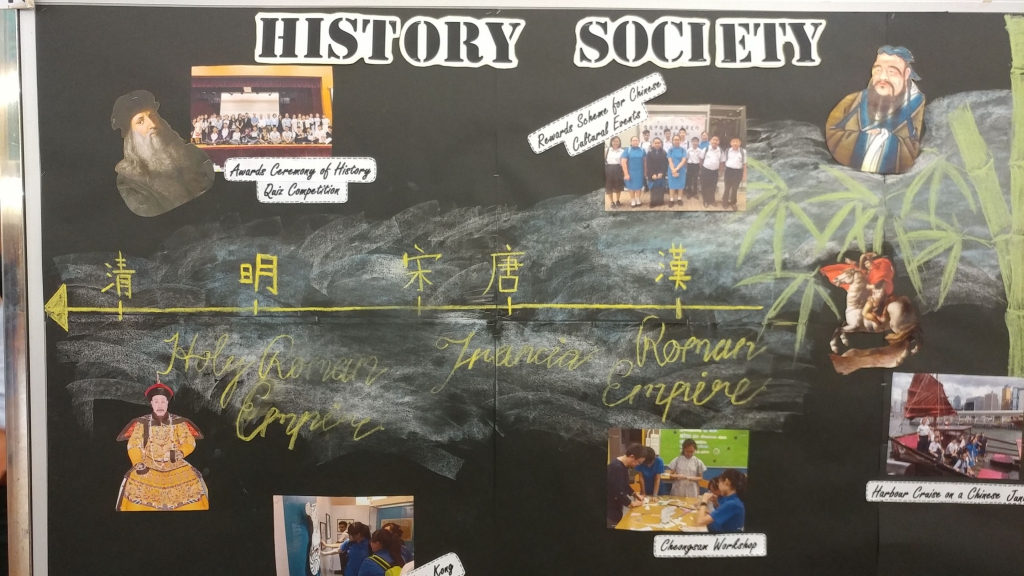 HISTORY SOCIETY
Awards Ceremony of History
Quiz Competition
Rewards Scheme for Chinese
Cultural Events
清 明 宋 唐 漢
Holy Roman
Empire
Francia
Roman
Empire
Harbour Cruise on a Chinese Jun
Cheongsam Workshop
Kong